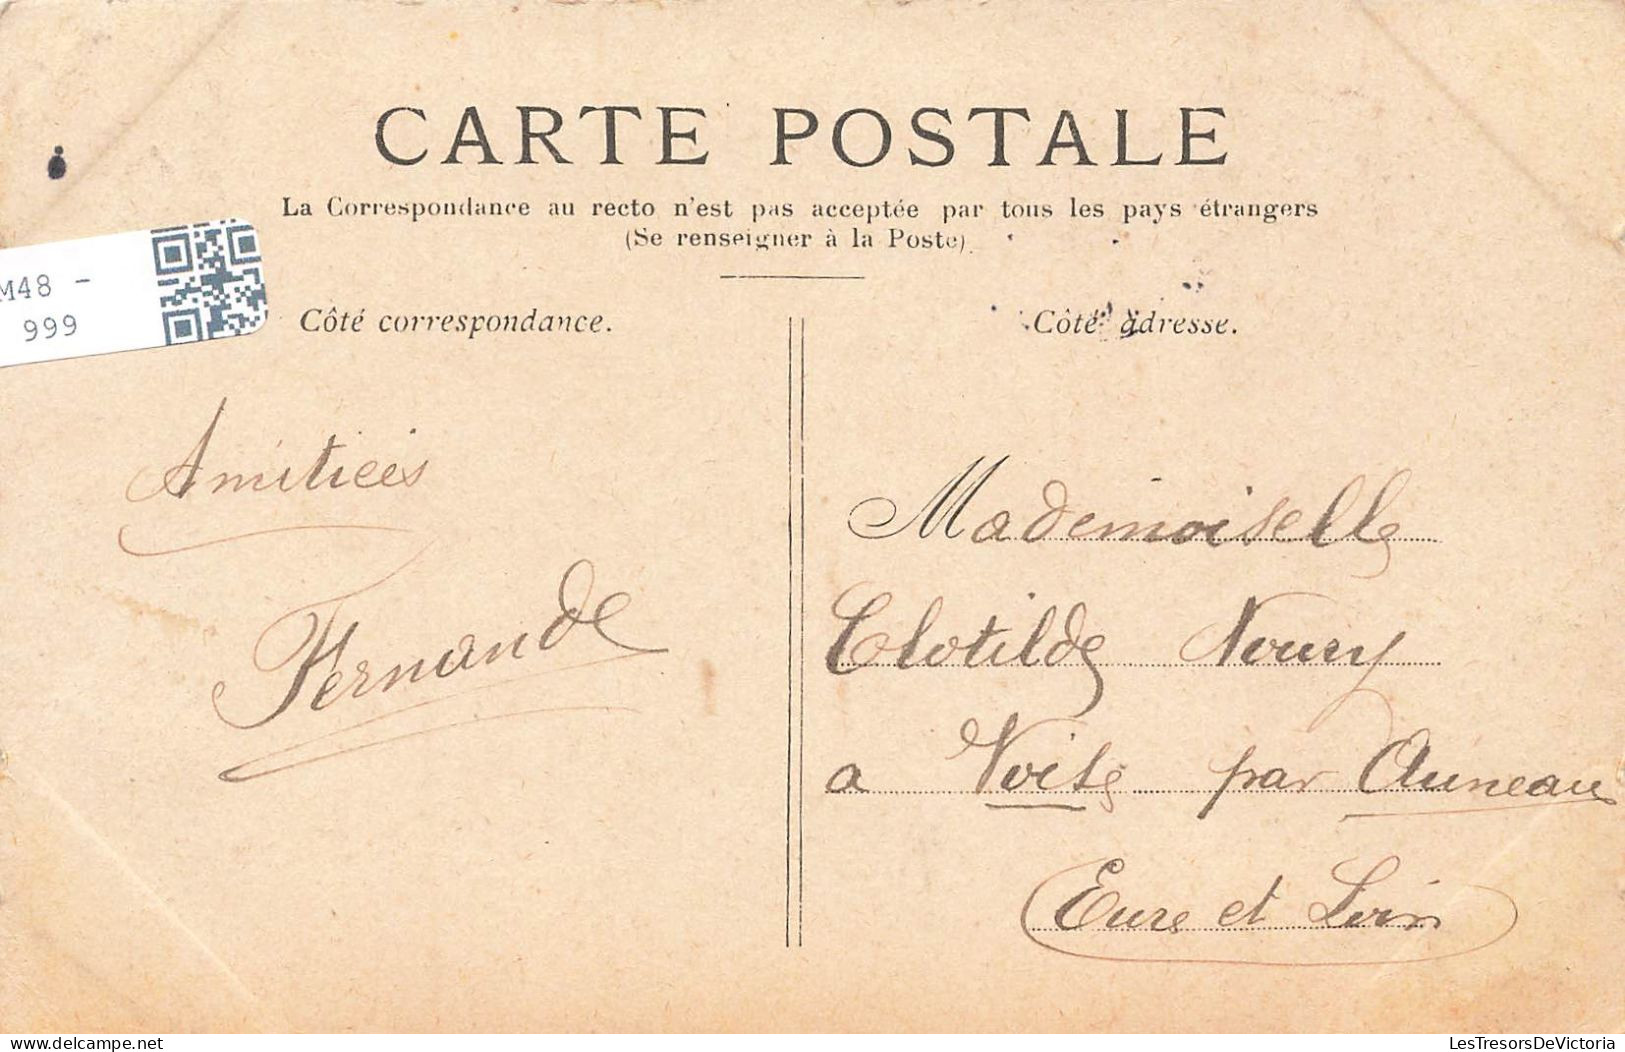 CARTE POSTALE
La Correspondance au recto n'est pas acceptée par tous les pays étrangers
(Se renseigner à la Poste)
M48 -
999
Côté correspondance.
Amitiées
Fernande
Côté adresse.
Mademoiselle
Clotilde Noury
a Voise par Auneau
Eure et Loir
delcampe.net
LesTresorsDeVictoria